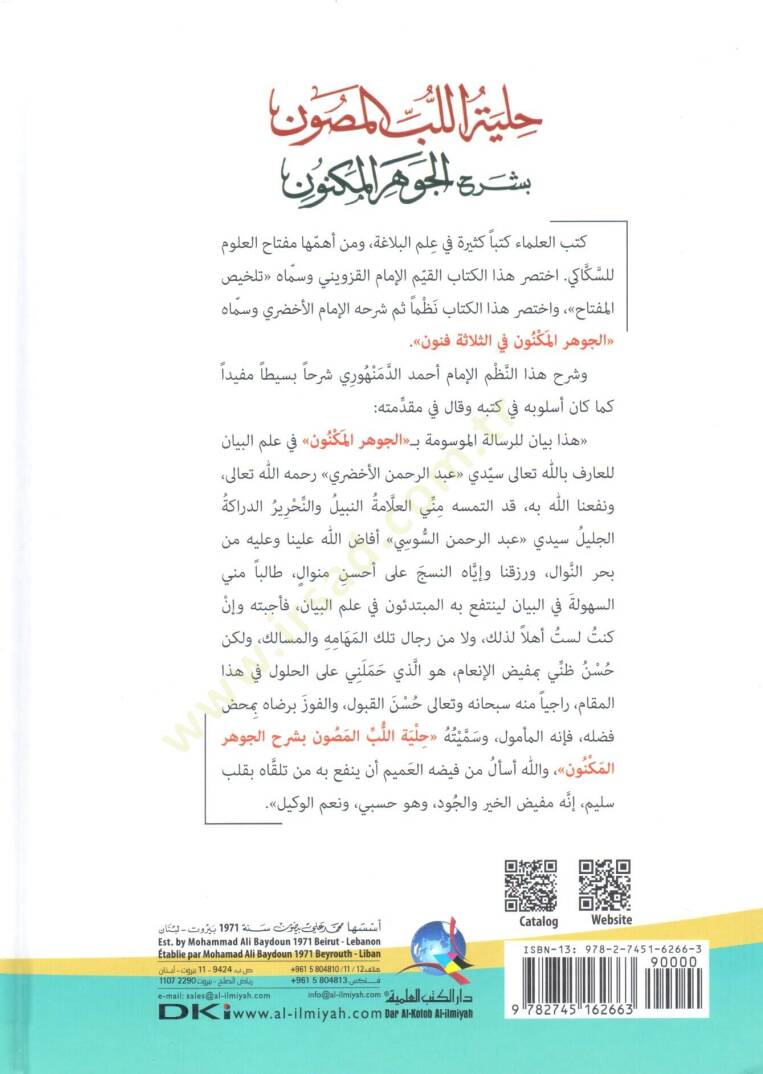 حِليَة اللُّبِّ المَصُون
بشرح الجَوهَر المَكنُون
كتب العلماء كتباً كثيرة في عِلم البلاغة، ومن أهمّها مفتاح العلوم
للسَّكَّاكي. اختصر هذا الكتاب القيّم الإمام القزويني وسماه «تلخيص
المفتاح»، واختصر هذا الكتاب نَظْماً ثم شرحه الإمام الأخضري وسماه
«الجوهر المَكْنُون في الثلاثة فنون».
وشرح هذا النَّظْم الإمام أحمد الدَّمَنْهُورِي شرحاً بسيطاً مفيداً
كما كان أسلوبه في كتبه وقال في مقدِّمته:
«هذا بيان للرسالة الموسومة بـ«الجوهر المَكْنُون» في علم البيان
للعارف بالله تعالى سيّدي «عبد الرحمن الأخضري» رحمه الله تعالى،
ونفعنا الله به، قد التمسه مِنّي العلَّامةُ النبيلُ والنِّحْرِيرُ الدراكةُ
الجليلُ سيدي «عبد الرحمن السُّوسِي» أفاض الله علينا وعليه من
بحر النَّوال، ورزقنا وإيَّاه النسجَ على أحسنِ منوالٍ، طالباً مني
السهولةَ في البيان لينتفع به المبتدئون في علم البيان، فأجبته وإنْ
كنتُ لستُ أهلاً لذلك، ولا من رجال تلك المَهَامِهِ والمسالك، ولكن
حُسْنُ ظنِّي بمفيض الإنعام، هو الَّذي حَمَلَنِي على الحلول في هذا
المقام، راجياً منه سبحانه وتعالى حُسْنَ القبول، والفوزَ برضاه بِمحض
فضله، فإنه المأمول، وسَمَّيْتُهُ «حِلْيَة اللُّبِّ المَصُون بشرح الجوهر
المَكْنُون»، والله أسألُ من فيضه العَميم أن ينفع به من تلقَّاه بقلب
سليم، إنَّه مفيض الخير والجُود، وهو حسبي، ونعم الوكيل».
www.irsad.com.tr
Catalog
Website
أسّسَها محمد علي بيضون سنة 1971 بيروت - لبنان
Est. by Mohammad Ali Baydoun 1971 Beirut - Lebanon
Établie par Mohamad Ali Baydoun 1971 Beyrouth - Liban
ص.ب: 9424 - 11 بيروت - لبنان
هاتف: 12 / 11 / 804810 5 961+
رياض الصلح - بيروت 2290 1107
فاكس: 804813 5 961+
e-mail: sales@al-ilmiyah.com
info@al-ilmiyah.com
DKi www.al-ilmiyah.com
دار الكتب العلمية®
Dar Al-Kotob Al-ilmiyah
ISBN-13: 978-2-7451-6266-3
90000
9 782745 162663